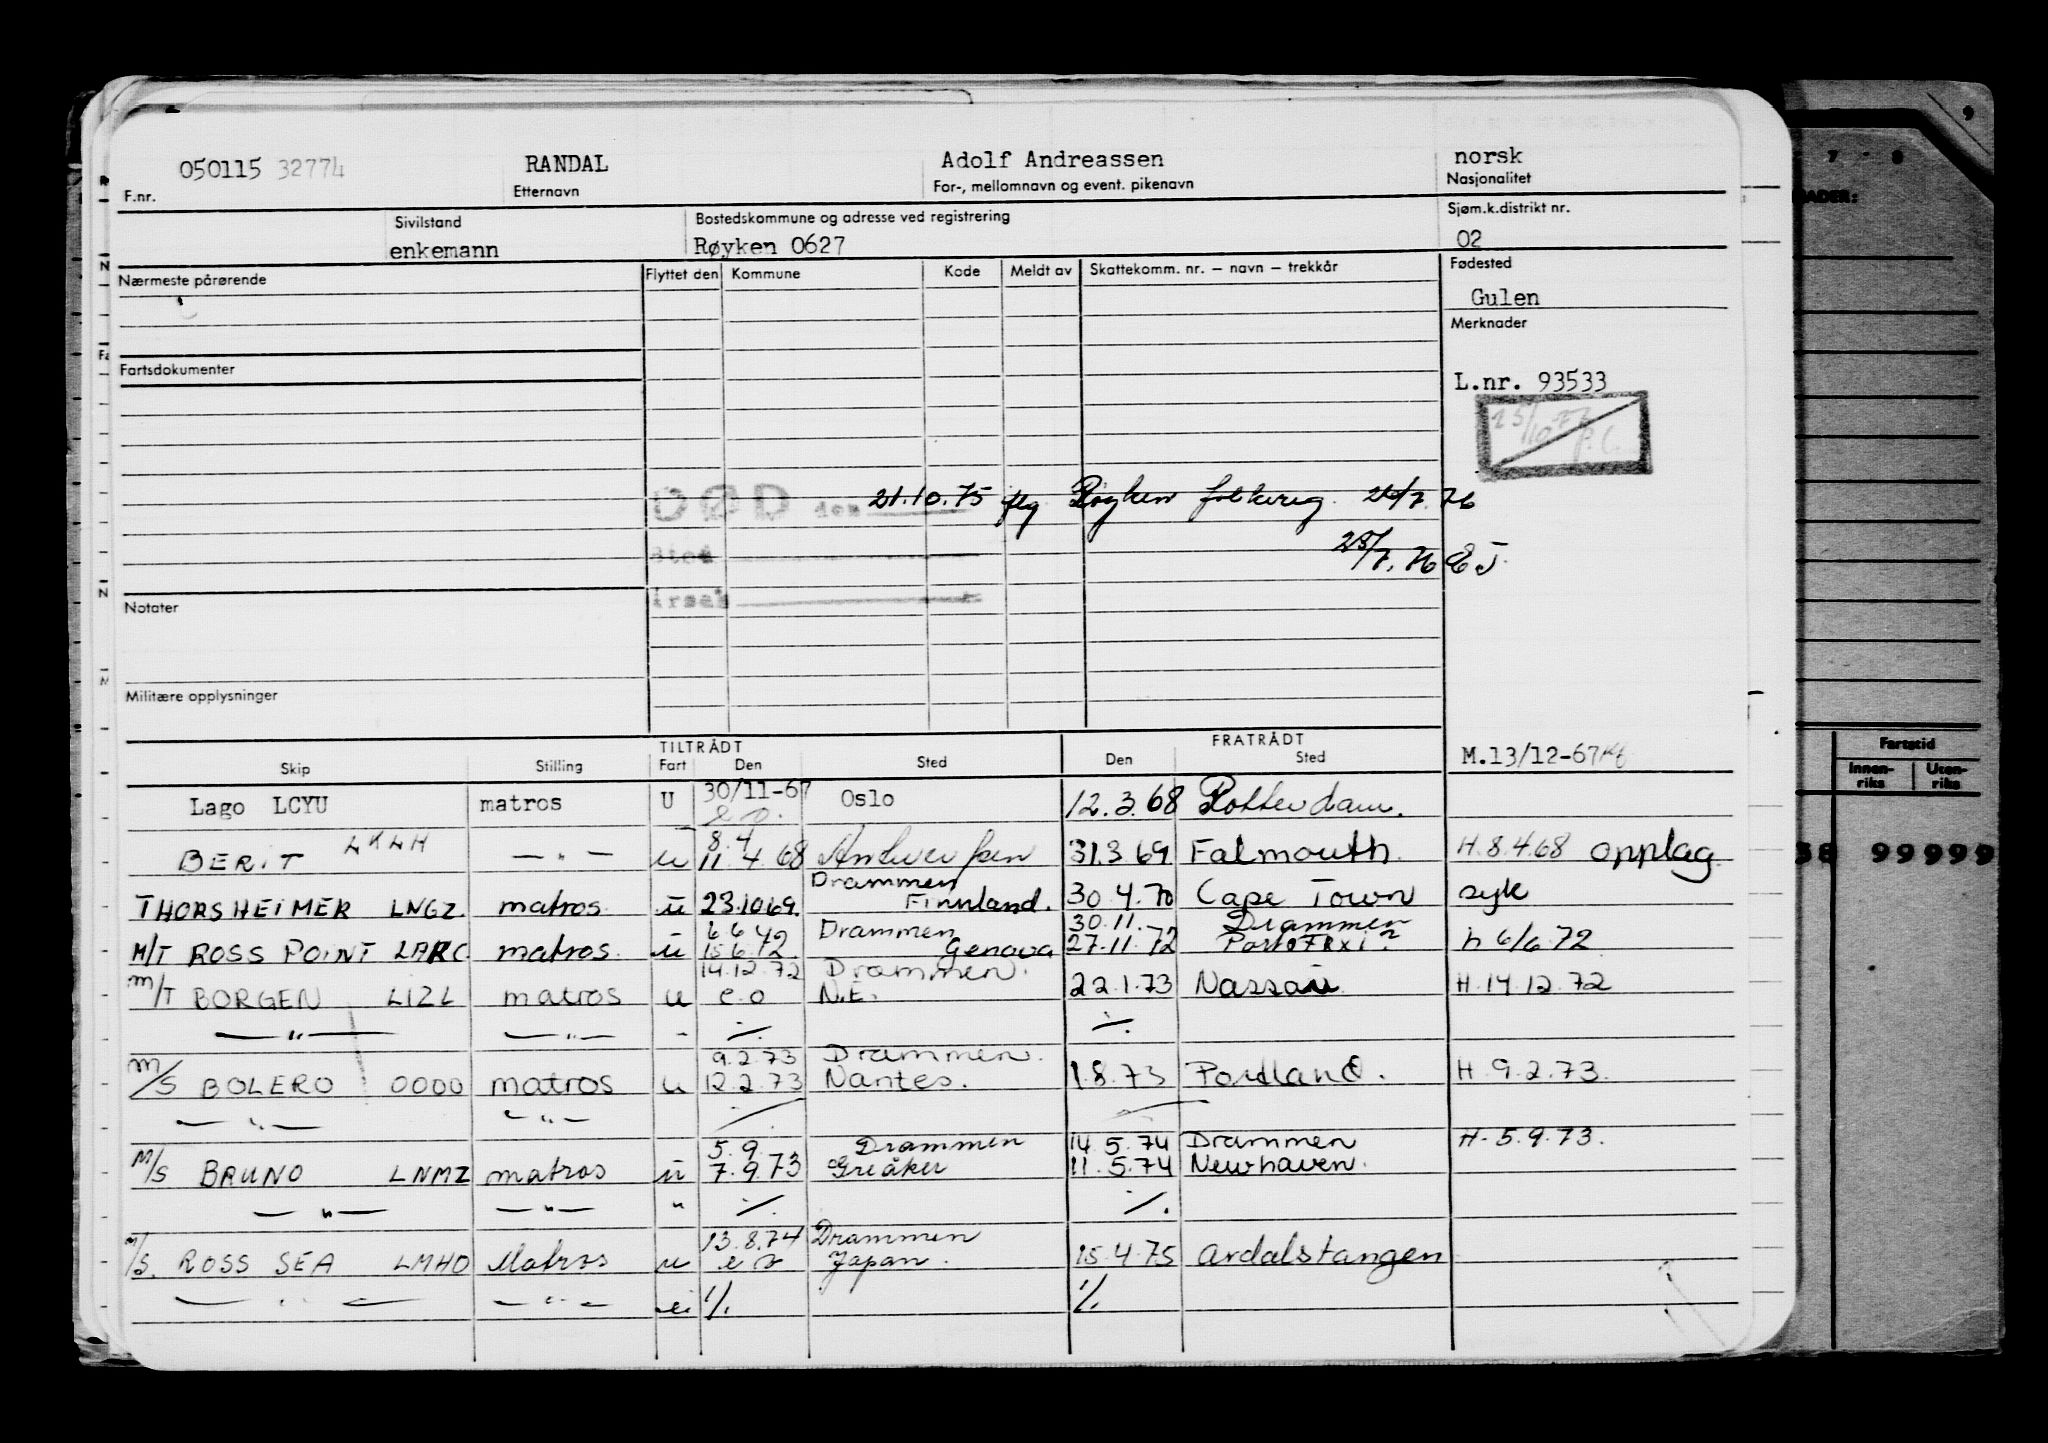 050115 32774 RANDAL Adolf Andreassen norsk
F.nr. Etternavn For-, mellomnavn og event. pikenavn Nasjonalitet
Sivilstand Bostedskommune og adresse ved registrering Sjøm.k.distrikt nr.
enkemann Røyken 0627 02
Nærmeste pårørende Flyttet den Kommune Kode Meldt av Skattekomm. nr. – navn – trekkår Fødested
Gulen
Merknader
Fartsdokumenter
L.nr. 93533
DØD den 21.10.75 Røyken folkereg. 7.76
7.76
Notater
Militære opplysninger
TILTRÅDT FRATRÅDT
Skip Stilling Fart Den Sted Den Sted M.13/12-67
Lago LCYU matros U 30/11-67 Oslo 12.3.68 Rotterdam.
8.4
BERIT LKLH — " — u 11.4.68 Antwerpen 31.3.69 Falmouth. H.8.4.68 opplag
Drammen
THORSHEIMER LNGZ. matros. u 23.10.69. Finnland. 30.4.70 Cape Town syk
6.6.72 Drammen 30.11. Drammen
M/T ROSS POINT LARC. matros. u 15.6.72 Genova 27.11.72 h 6/6.72
14.12.72 Drammen.
M/T BORGEN LIZL matros u e.o N.E. 22.1.73 Nassau H.14.12.72
— " — — " — - ⁒ ⁒
9.2.73 Drammen.
M/S BOLERO OOOO matros u 12.2.73 Nantes. 1.8.73 Portland. H.9.2.73.
— " — — " —
5.9. Drammen 14.5.74 Drammen H.5.9.73.
M/S BRUNO LNMZ matros u 7.9.73 Greåker 11.5.74 Newhaven.
— " — — " — " ⁒ ⁒
13.8.74 Drammen
M/S. ROSS SEA LMHO Matros u e o Japan. 15.4.75 Ardalstangen
— " — — " — u ⁒ ⁒
9
7 - 8
Fartstid
Innen-riks Uten-riks
58 99999